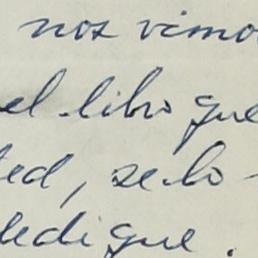 nos vimo
el libro que
ted, se lo -
dedique.